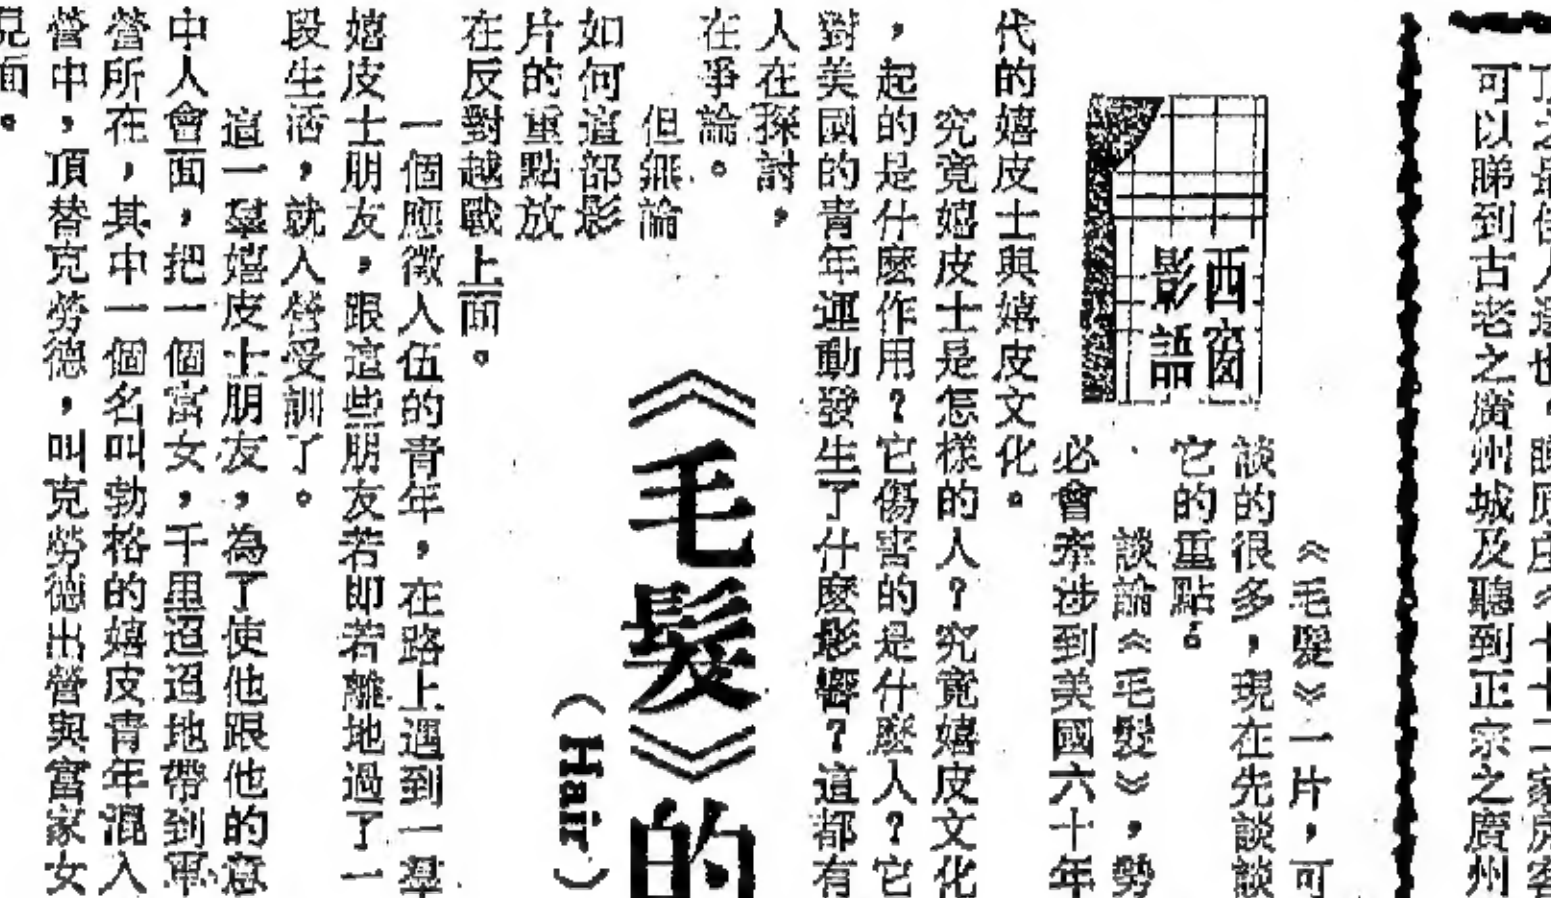 可以睇到古老之廣州城及聽到正宗之廣州
西窗
影語
《毛髮》一片,可
談的很多,現在先談談
它的重點。
談論《毛髮》,勢
必會牽涉到美國六十年
代的嬉皮士與嬉皮文化。
究竟嬉皮士是怎樣的人?究竟嬉皮文化
,起的是什麼作用?它傷害的是什麼人?它
對美國的青年運動發生了什麼影響?這都有
人在探討,
在爭論。
《毛髮》的
(Hair)
但無論
如何這部影
片的重點放
在反對越戰上面。
一個應徵入伍的青年,在路上遇到一羣
嬉皮士朋友,跟這些朋友若即若離地過了一
段生活,就入營受訓了。
這一羣嬉皮士朋友,為了使他跟他的意
中人會面,把一個富女,千里迢迢地帶到軍
營所在,其中一個名叫勃格的嬉皮青年混入
營中,頂替克勞德,叫克勞德出營與富家女
見面。